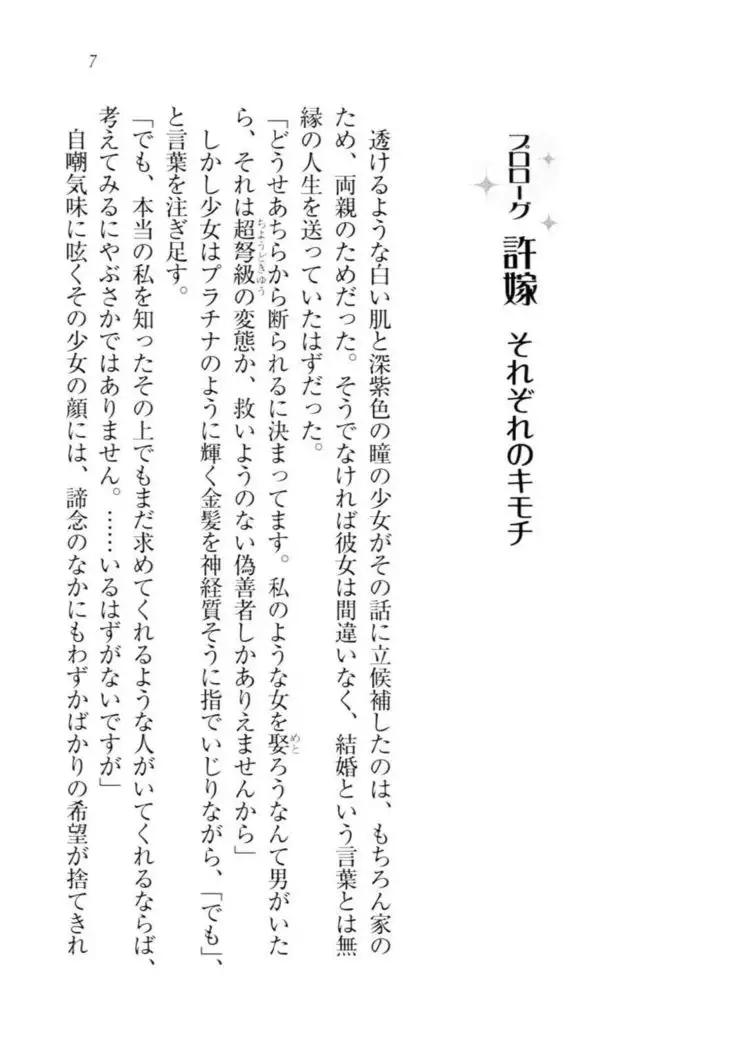 7
プロローグ 許嫁 それぞれのキモチ
透けるような白い肌と深紫色の瞳の少女がその話に立候補したのは、もちろん家の
ため、両親のためだった。そうでなければ彼女は間違いなく、結婚という言葉とは無
縁の人生を送っていたはずだった。
「どうせあちらから断られるに決まってます。私のような女を娶ろうなんて男がいた
ら、それは超弩級の変態か、救いようのない偽善者しかありえませんから」
しかし少女はプラチナのように輝く金髪を神経質そうに指でいじりながら、「でも」、
と言葉を注ぎ足す。
「でも、本当の私を知ったその上でもまだ求めてくれるような人がいてくれるならば、
考えてみるにやぶさかではありません。……いるはずがないですが」
自嘲気味に呟くその少女の顔には、諦念のなかにもわずかばかりの希望が捨てきれ